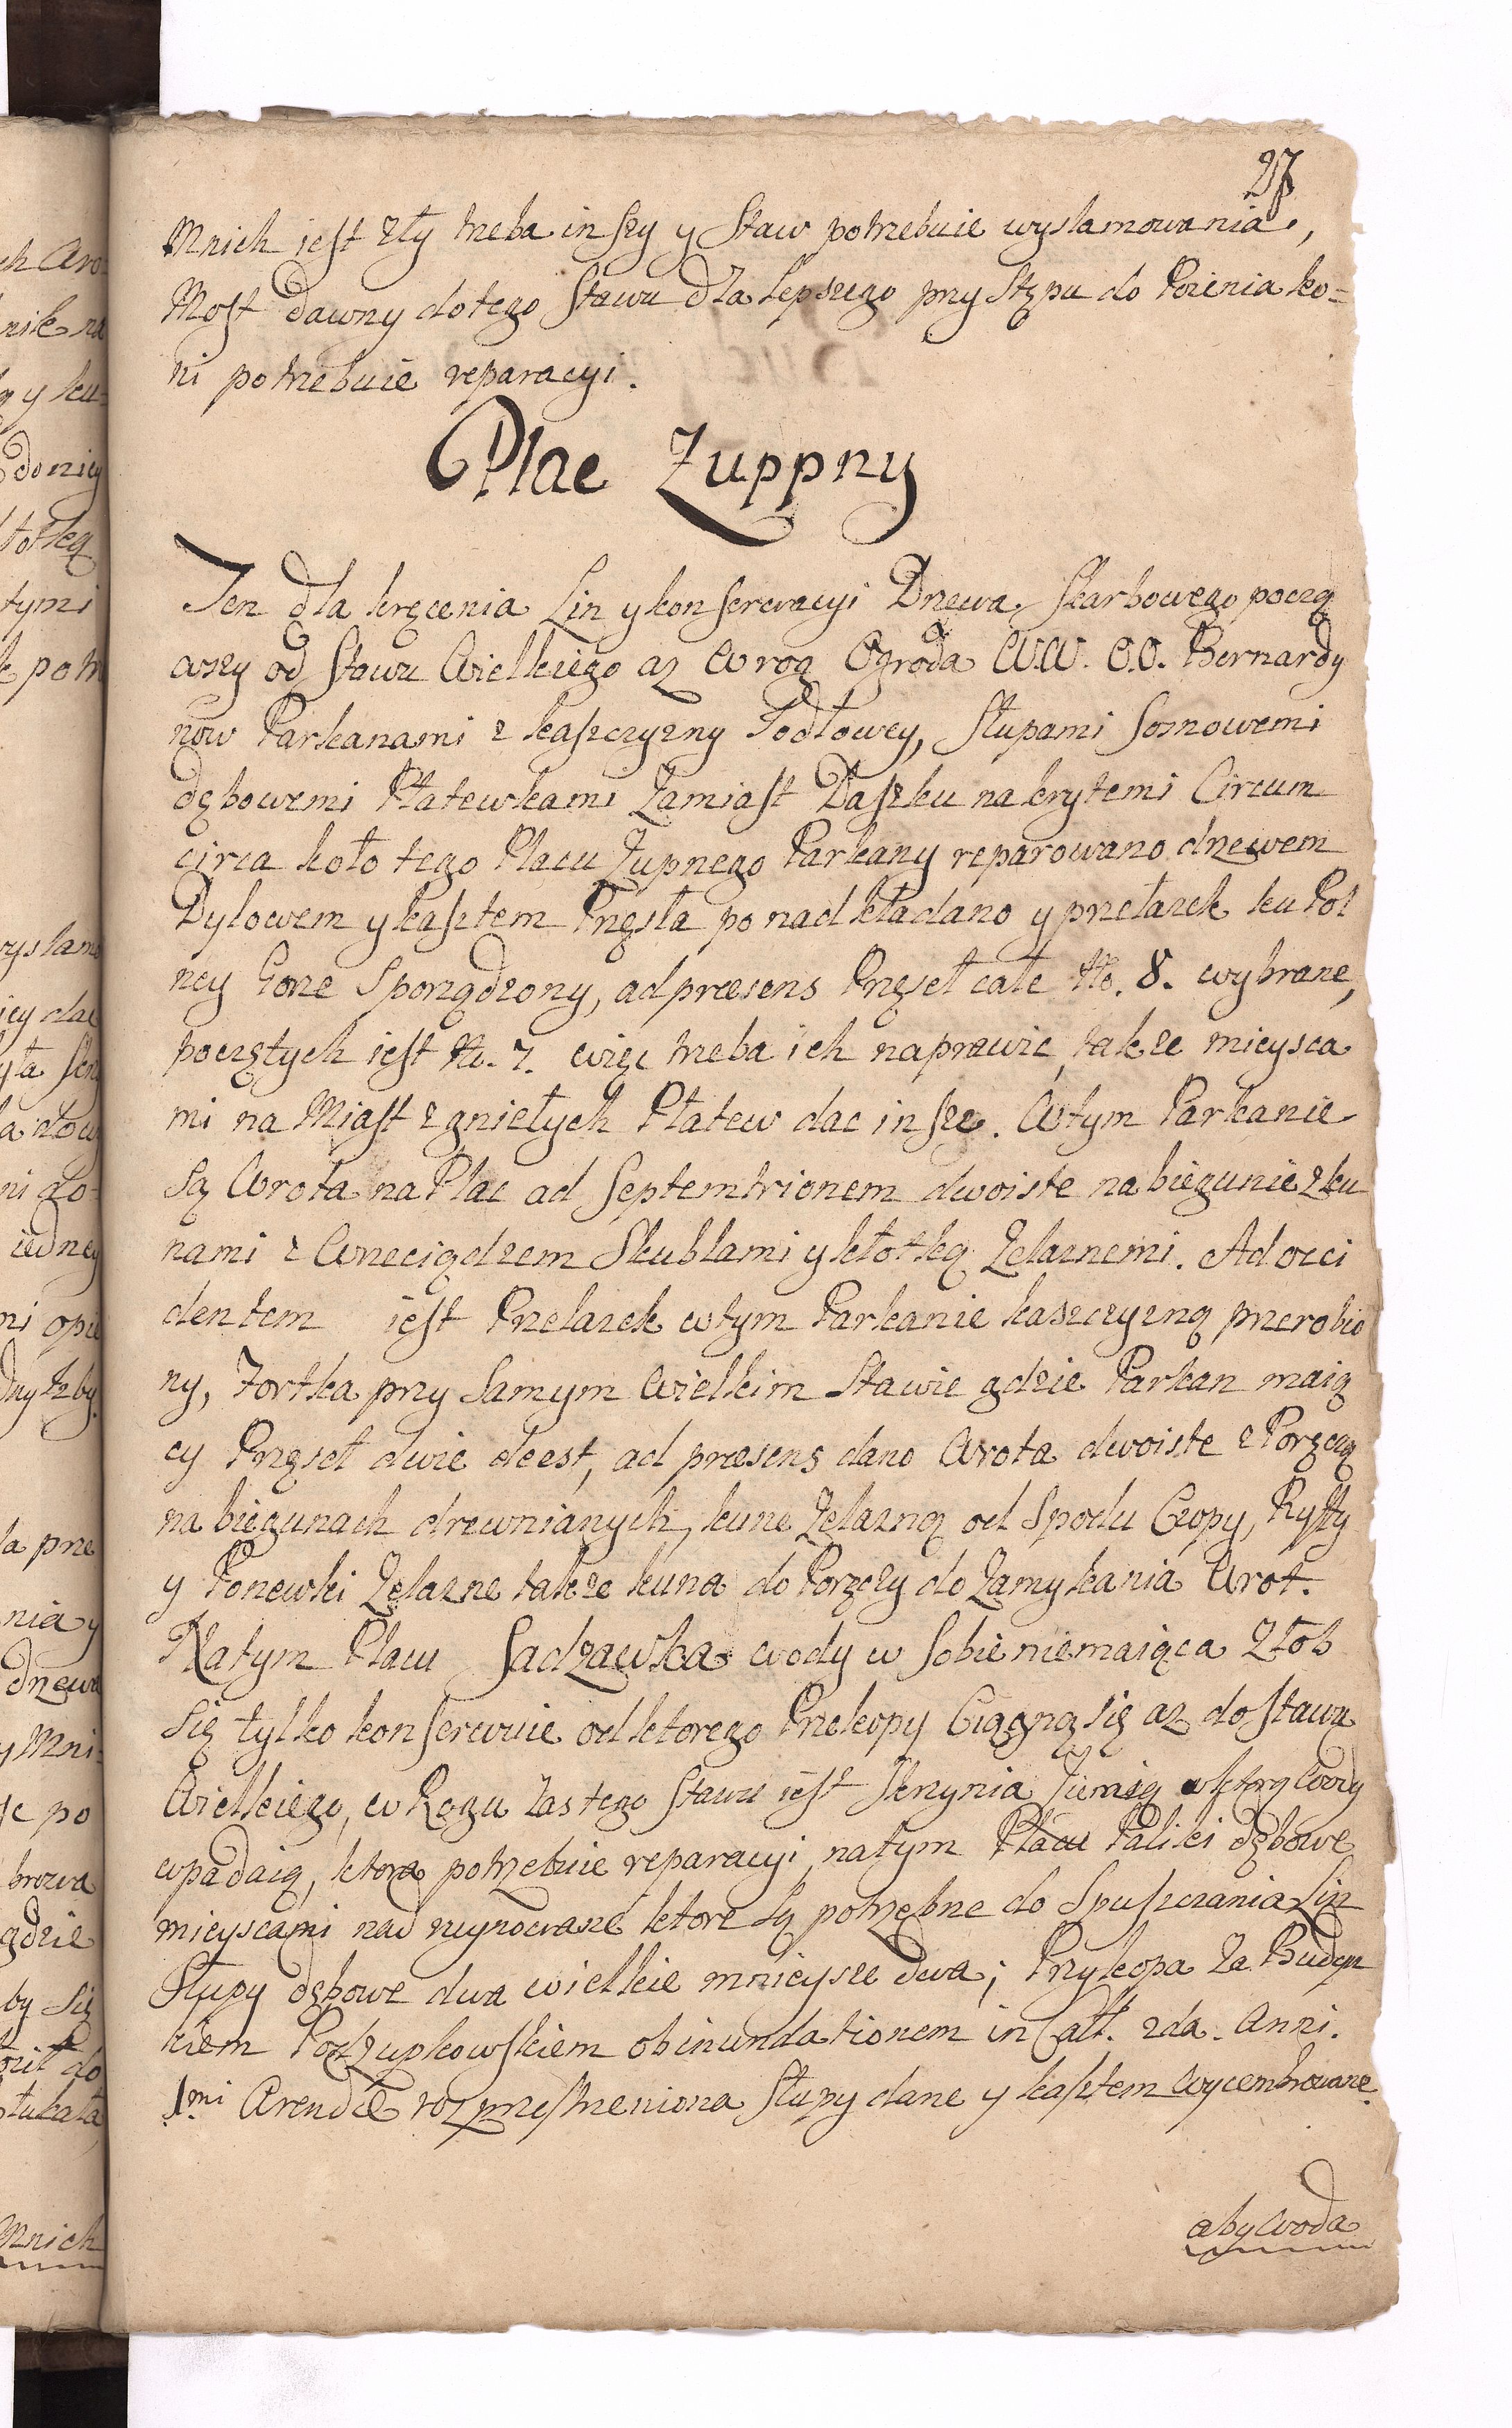 27
Mnich iest zły trzeba inszy y Staw potrzebuie wyslamowania,
Most dawny do tego Stawu dla lepszego przystępu do Poienia ko=
ni potrzebuie reparacyi.
Plac Zuppny
Ten dla kręcenia Lin y konserwacyi Drzewa Skarbowego począ
wszy od Stawu Wielkiego az w rog Ogroda W.W. O.O. Bernardy
now Parkanami z kaszczyzny Jodłowey, Słupami Sosnowemi
dębowemi Płatewkami Zamiast Daszku nakrytemi Circum
circa koło tego Placu Zupnego Parkany reparowano drzewem
Dylowem y kasztem Przęsła ponadkładano y przełazek ku Pol
ney Gorze Sporządzony, ad præsens Przęseł całe No. 8. wybrane,
poczętych iest No. 7. więc trzeba ich naprawic, także mieysca
mi na Miast zgniełych Płatew dac insze. W tym Parkanie
Są Wrota na Plac ad Septemtrionem dwoiste na biegunie z ku
nami z Wrzeciądzem Skublami y kłotką Zelaznemi. Ad occi
dentem iest Przelazek w tym Parkanie kaszczyzną przerobio
ny, Fortka przy Samym Wielkim Stawie gdzie Parkan maią
cy Przęseł dwie deest, ad præsens dano Wrota dwoiste z Poręczą
na biegunach drewnianych, kune Zelazną od Spodu Czopy, Ryffy
y Ponewki Zelazne także kuna do Poręczy do Zamykania Wrot.
Na tym Placu Sadzawka wody w Sobie niemaiąca Złob
Się tylko konserwuie od ktorego Przekopy Ciągną się az do Stawu
Wielkiego, w Rogu zas tego Stawu iest Skrzynia Ziemią w ktorą Wody
wpadaią, ktora potrzebuie reparacyi, na tym Placu Paliki dębowe
mieyscami nadruynowane ktore Są potrzebne do Spuszczania Lin
Słupy dębowe dwa wielkie mnieysze dwa; Przykopa Za Budyn
kiem Podzupkowskiem ob inundationem in Calt. 2da. Anni.
1mi Arendæ rozprzestrzeniona Słupy dane y kasztem wycembrowane.
aby Woda